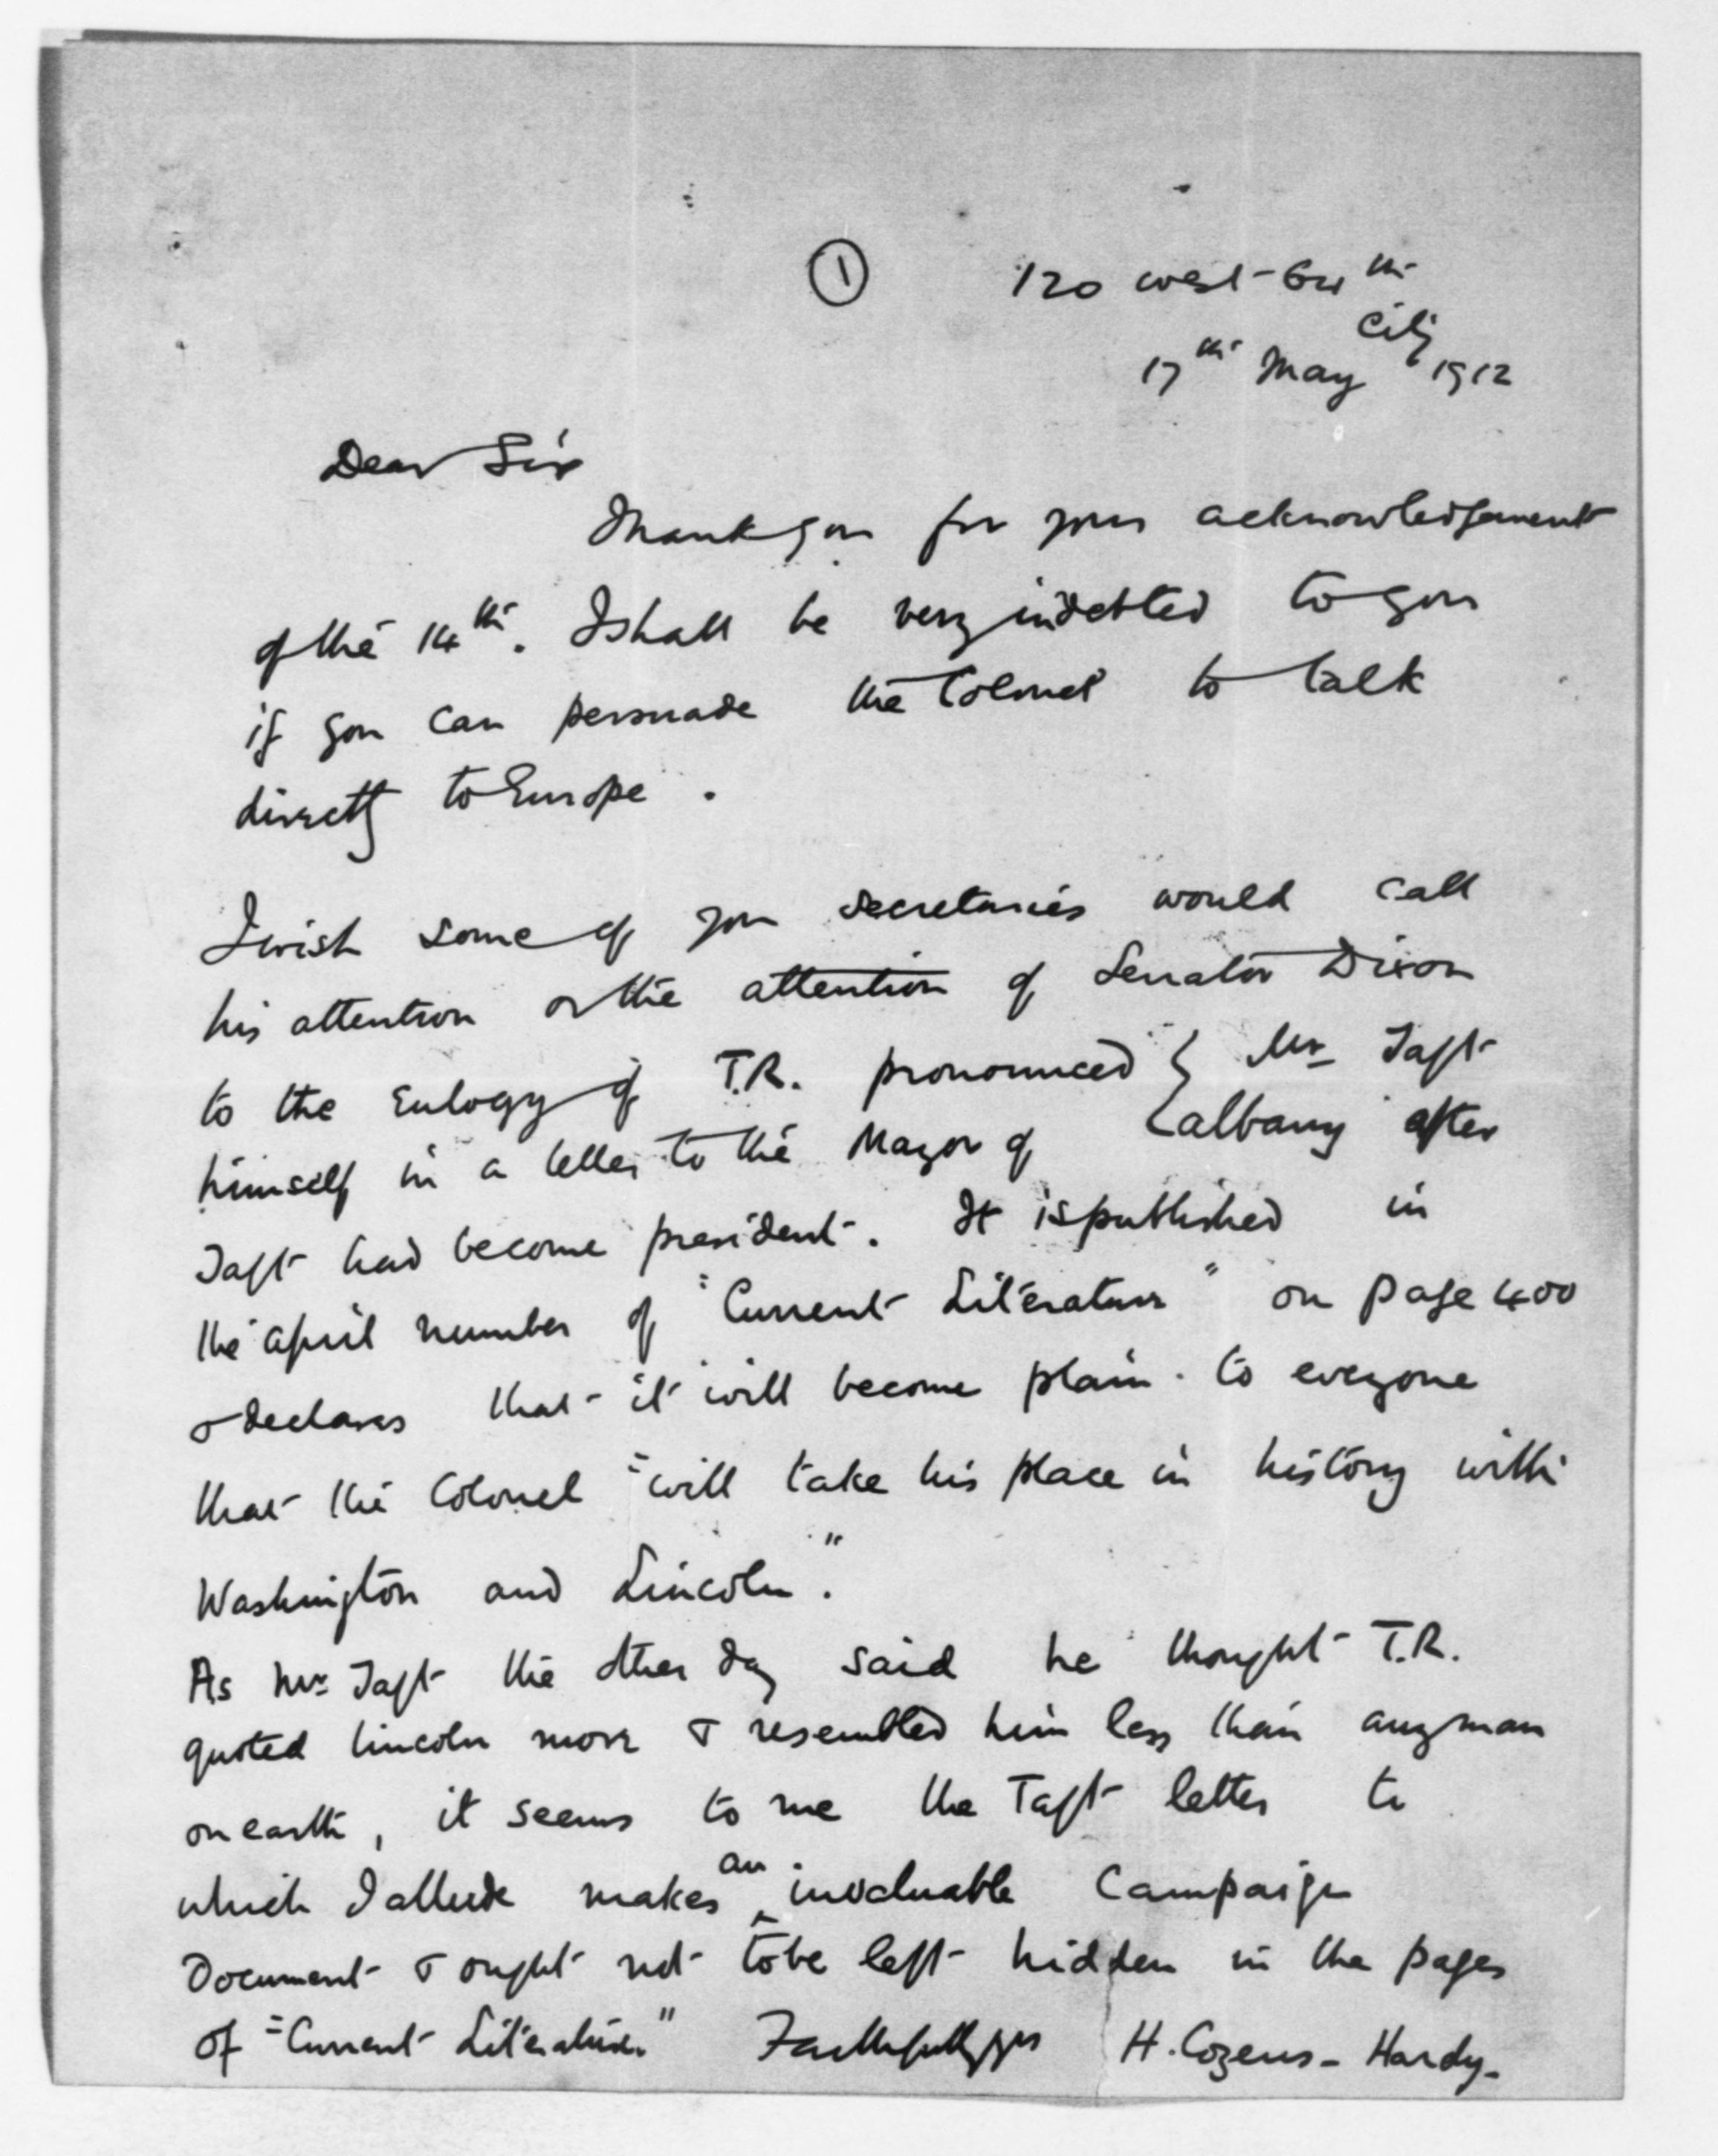 ①
120 West 64th
City
17th May 1912
Dear Sir
Thank you for your acknowledgement
of the 14th. I shall be very indebted to you
if you can persuade the Colonel to talk
directly to Europe.
I wish some of you secretaries would call
his attention or the attention of Senator Dixon
to the Eulogy of T.R. pronounced } Mr Taft
himself in a letter to the Mayor of { Albany after
Taft had become president. It is published in
the April number of "Current Literature" on page 400
& declares that it will become plain to everyone
that the Colonel "will take his place in history with
Washington and Lincoln."
As Mr Taft the other day said he thought T.R.
quoted Lincoln more & resembled him less than any man
on earth, it seems to me the Taft letter to
which I allude makes an invaluable Campaign
Document & ought not to be left hidden in the pages
of "Current Literature" Faithfully yrs H. Cozens-Hardy-